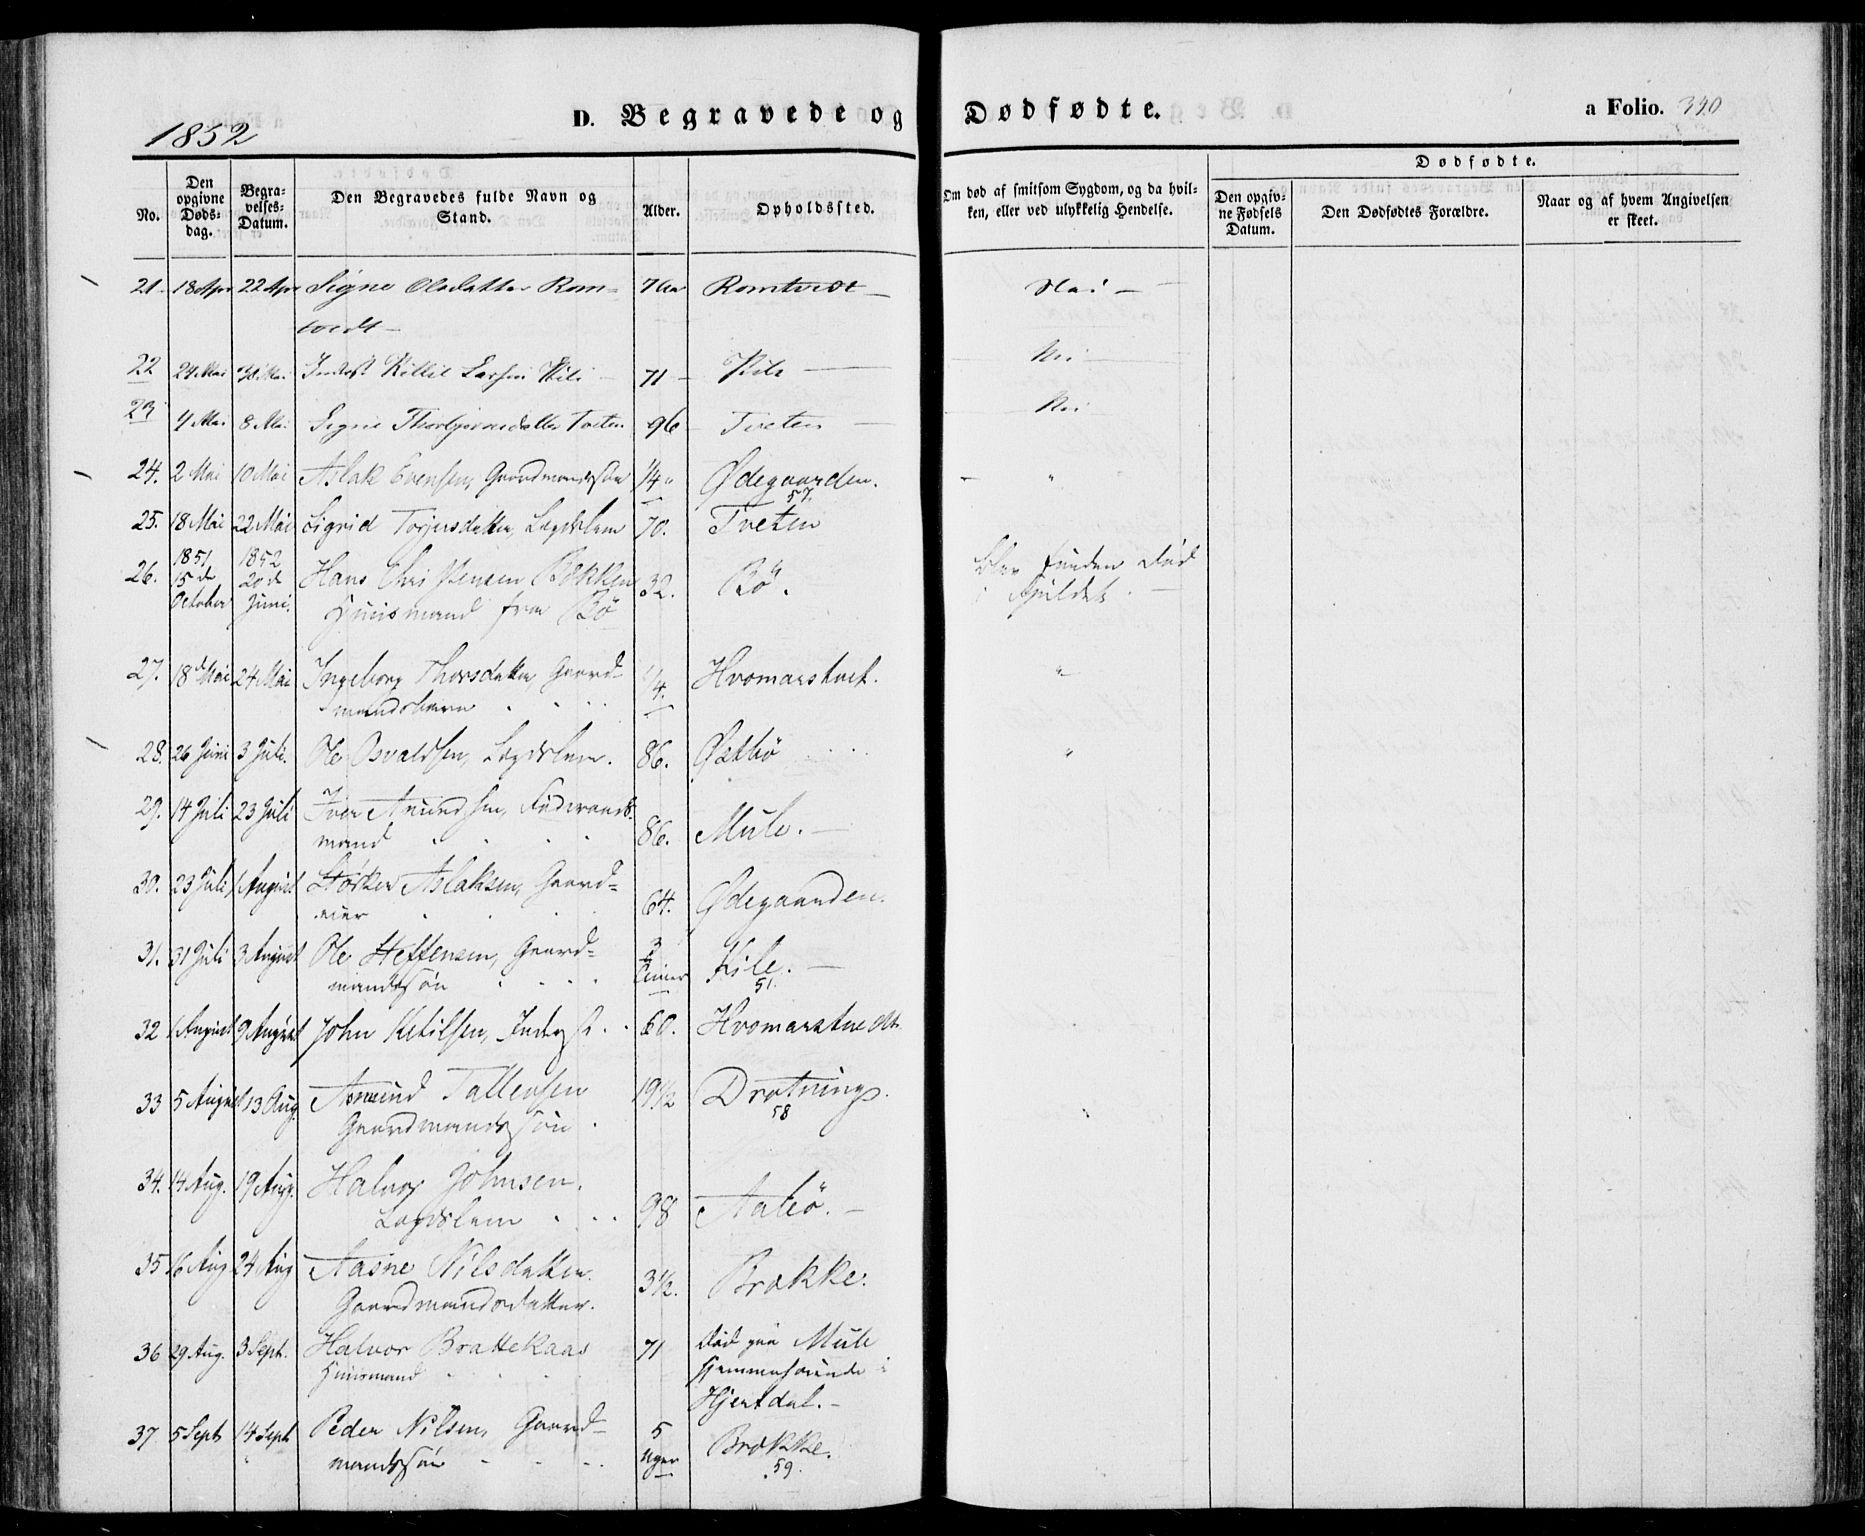 1852
D. Begravede og Dødfødte.
a Folio. 340
No.
Den opgivne Døds-dag.
Begra-velses-Datum.
Den Begravedes fulde Navn og Stand.
Alder.
Opholdssted.
Om død af smitsom Sygdom, og da hvil-ken, eller ved ulykkelig Hendelse.
Dødfødte.
Den opgiv-ne Fødsels Datum.
Den Dødfødtes Forældre.
Naar og af hvem Angivelsen er skeet.
21 18 Apr 22 Apr Signe Olsdatter Rom= Romtvedt — Nei —
tvedt —
22 24 Mai Kittil Larsen Kile — 71 — Kile — Nei —
23 4 Mai 8 Mai Signe Thorbjørnsdatter Tveten 96 Tveten — Nei
24. 2 Mai 10 Mai Aslak Evensen, Gaardmandssøn 1/4 " Ødegaarden. — "
57.
25. 18 Mai 22 Mai Sigrid Torjusdatter, Lægdslem 70. Tveten
26. 1851 15 de October 1852 20 de Juni. Hans Christensen Bækken 32. Bö. blev funden død
Huusmand fra Bö i Fjeldet. —
27. 18 d Mai 24 Mai Ingeborg Thorsdatter, Gaard= 1/4. Hvomarstvet. "
mandsbarn . . .
28. 26 Juni 3 Juli. Ole Osvaldsen, Lægdslem. 86. Østbö . . . "
29. 14 Juli 23 Juli Iver Amundsen, Føderaads=
mand . . . 86. Mule. —
30. 23 Juli 1 August Störker Aslaksen, Gaard=
eier . . . 64. Ødegaarden.
31. 31 Juli 3 August Ole Steffensen, Gaard= 3 Timer Kile. —
mandssøn . . . 51.
32 1 August 9 August John Ketilsen, Inderst . . 60. Hvomarstvedt
33 5 August 13 Aug. Asmund Tallevsen 19 1/2 Drotning.
Gaardmandssøn . 58
34. 14 Aug. 19 Aug. Halvor Johnsen.
Lægdslem . . . 98 Aabö. —
35 16 Aug 24 Aug Aasne Nilsdatter. 3 1/2. Brække.
Gaardmandsdatter.
36 29 Aug. 3 Sept. Halvor Brattekaas 71 død paa Mule
Huusmand . . . Hjemmehørende i
Hjertdal. —
37 5 Sept 14 Sept Peder Nilsen, Gaard= 5 Uger Brække.
mandssøn . . . 59.